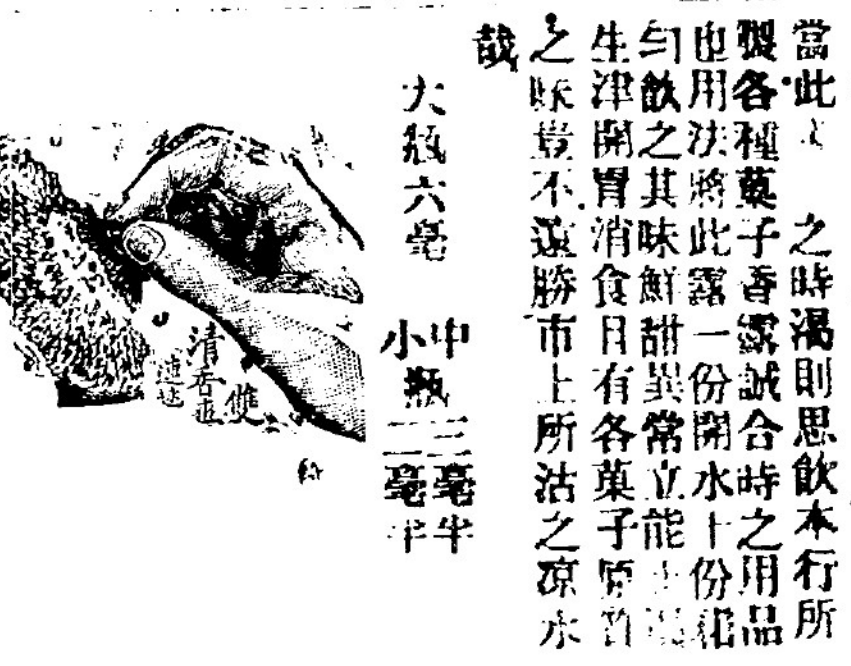 當此 之時渴則思飲本行所
製各種菓子香露誠合時之用品
也用法將此露一份開水十份和
勻飲之其味鮮甜異常立能止渴
生津開胃消食日有各菓子原質
之味豈不遠勝市上所沽之凉水
哉
大瓶六毫
中 三毫半
瓶
小 二毫半
清香
雙